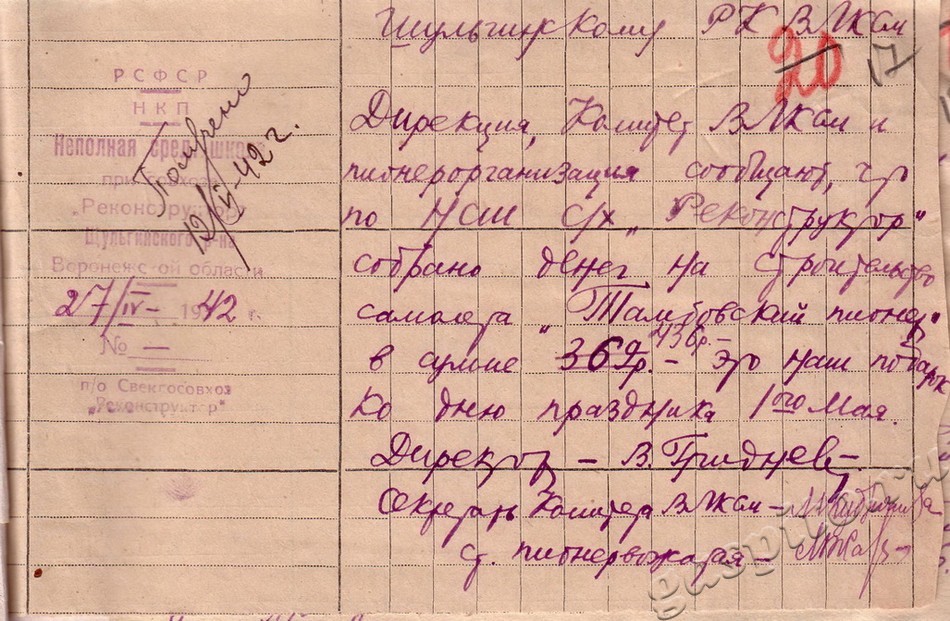 Шульгинскому РК ВЛКСМ
20 17
РСФСР
НКП
Неполная средн. школа
при совхозе
„Реконструктор"
Щульгинского р-на
Воронежской области
27/IV- 1942 г.
№ —
п/о Свеклосовхоз
„Реконструктор"
12/V-42 г.
Дирекция, Комитет ВЛКСМ и
пионерорганизация сообщают, что
по НСШ с/х „Реконструктор"
собрано денег на строительство
самолета „Тамбовский пионер"
436р.-
в сумме 369р.- Это наш подарок
ко дню праздника 1ого Мая.
Директор – В. Гриднев
Секретарь Комитета ВЛКСМ –
ст. пионервожатая –
gaspito.ru